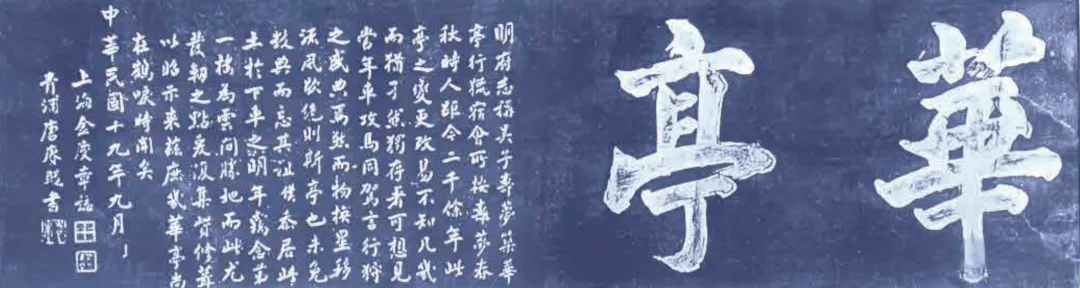 華亭
明府志稱吳子壽夢築華
亭行獵宿會所按壽夢春
秋時人距今二千餘年此
亭之變更改易不知凡幾
而猶孑然獨存者可想見
當年車攻馬同駕言行狩
之盛典焉然而物換星移
流風欲絕則斯亭也未免
數典而忘其祖僕忝居此
土於下車之明年竊念第
一樓為雲間勝地而此尤
發軔之點爰復集貲修葺
以昭示來茲庶幾華亭尚
在鶴唳時聞矣
中華民國十九年九月
上海金慶章誌
青浦唐書